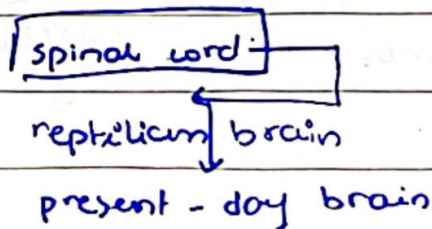 spinal cord
reptilian brain
present-day brain